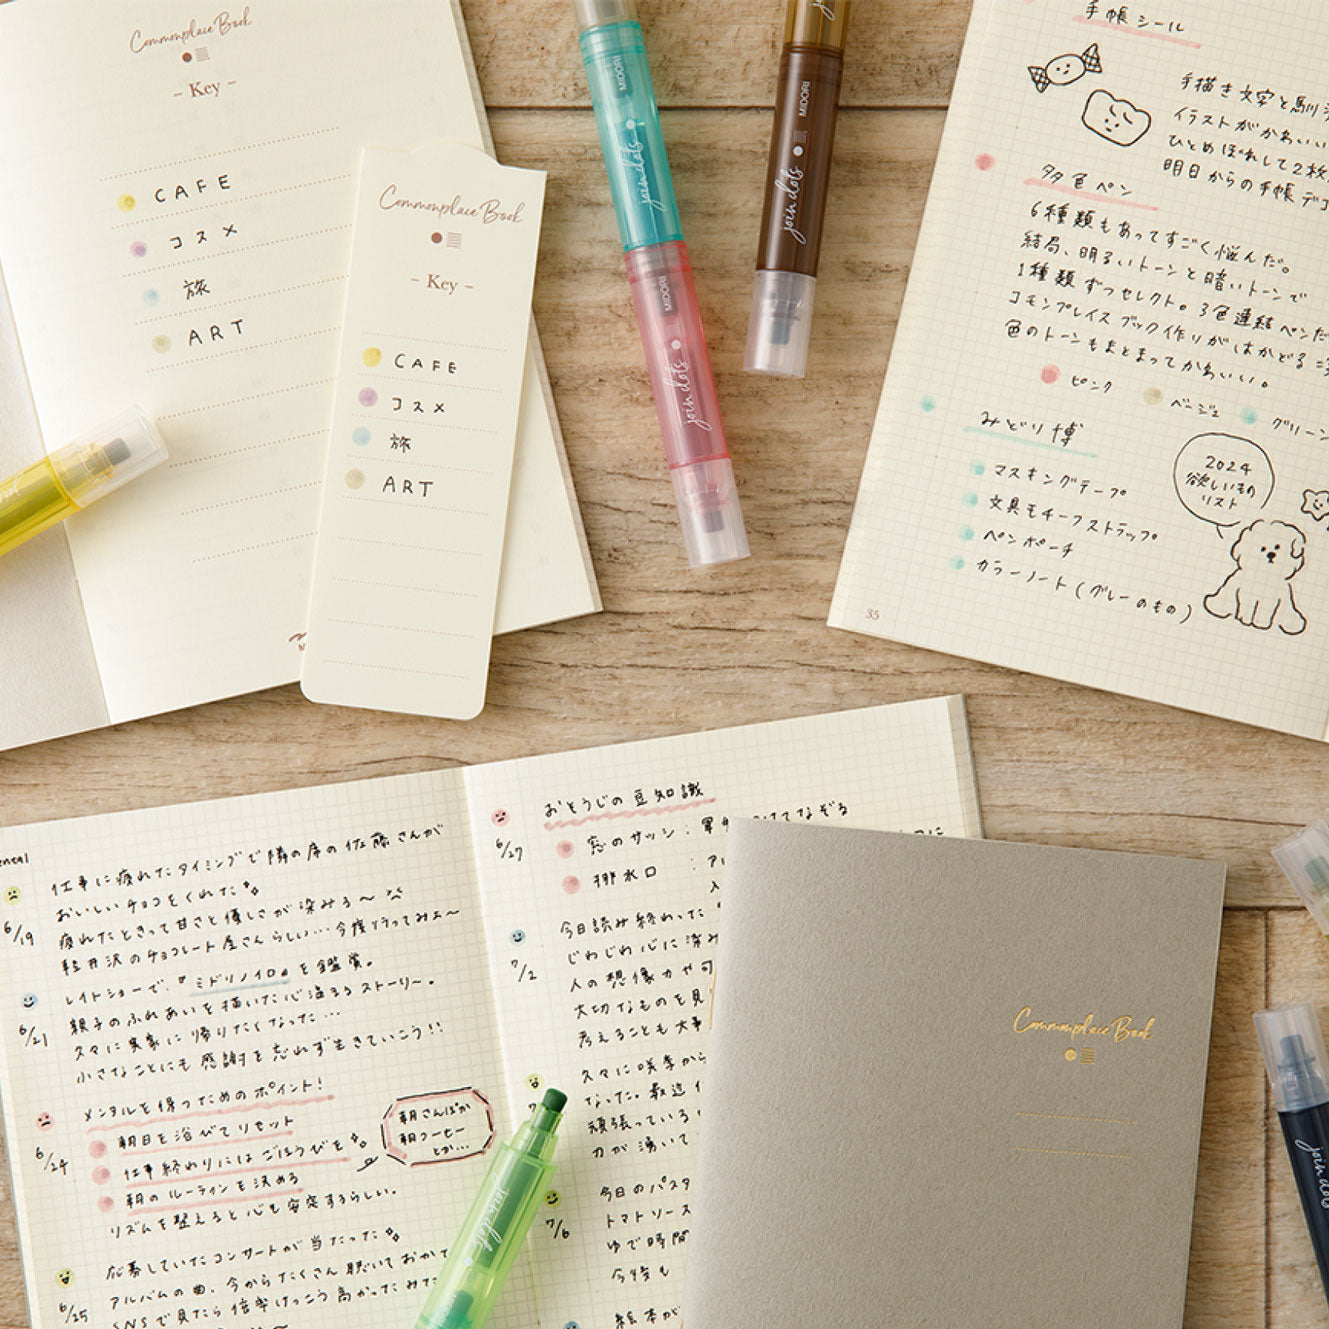 Commonplace Book
- Key -
CAFE
コスメ
旅
ART
Commonplace Book
- Key -
CAFE
コスメ
旅
ART
MIDORI
join dots
MIDORI
join dots
MIDORI
join dots
手帳シール
手描き文字と馴
イラストがかわいい
ひとめぼれして2枚
明日からの手帳デコ
多色ペン
6種類もあってすごく悩んだ。
結局、明るいトーンと暗いトーンで
1種類ずつセレクト。3色連結ペンだ
コモンプレイスブック作りがはかどる
色のトーンもまとまってかわいい。
ピンク
ベージュ
グリーン
みどり博
マスキングテープ
文具モチーフストラップ
ペンポーチ
カラーノート(グレーのもの)
2024
欲しいもの
リスト
35
ental
6/19
仕事に疲れたタイミングで隣の席の佐藤さんが
おいしいチョコをくれた
疲れたときって甘さと優しさが染みる〜
軽井沢のチョコレート屋さんらしい…今度行ってみよ〜
6/21
レイトショーで、『ミドリノイロ』を鑑賞。
親子のふれあいを描いた心温まるストーリー。
久々に実家に帰りたくなった…
小さなことにも感謝を忘れず生きていこう!!
6/24
メンタルを保つためのポイント!
朝日を浴びてリセット
仕事終わりにはごほうびを
朝のルーティンを決める
リズムを整えると心も安定するらしい。
朝さんぽか
朝コーヒー
とか…
6/25
応募していたコンサートが当たった
アルバムの曲、今からたくさん聴いておかて
SNSで見たら倍率けっこう高かったみた
6/27
おそうじの豆知識
窓のサッシ:
てなぞる
排水口 :
7/2
今日読み終わった
じわじわ心に染み
人の想像力や可
大切なものを見
考えることも大事
久々に咲季から
なった。最近
頑張っている
力が湧いて
7/6
今日のパスタ
トマトソース
ゆで時間
今後も
絵本が
join dots
Commonplace Book
join dots